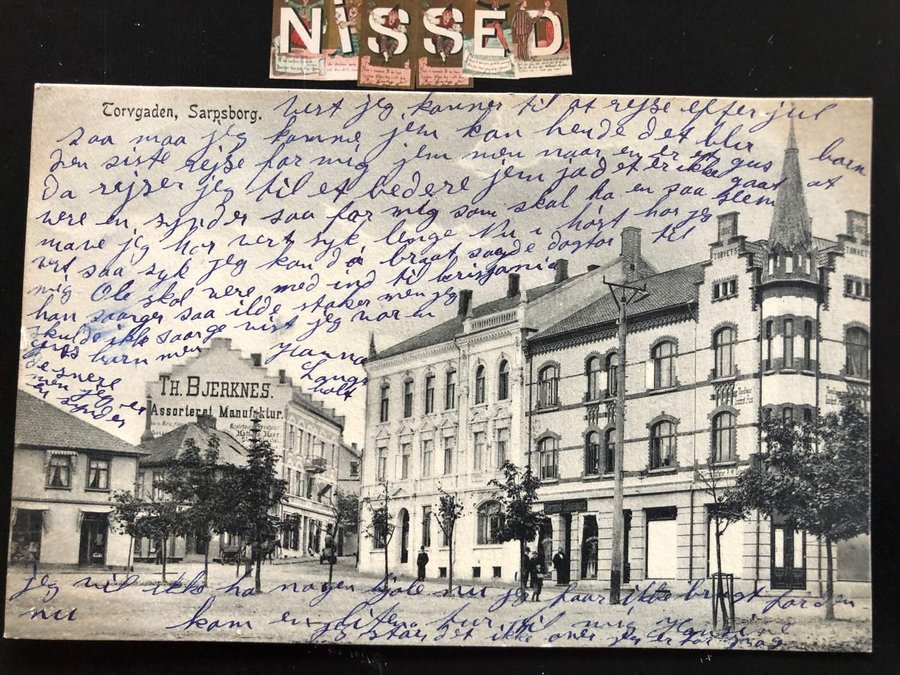 NiSSED
Torvgaden, Sarpsborg.
vist jeg kommer til at rejse efter jul
saa maa jeg komme jem kan hende det blir
den siste rejse for mig jem men naar en er
barn
Da rejser jeg til et bedere jem jad et er ikke gaat at
vere en synder saa for mig som skal ha en saa slem
jeg har vert syk lenge Nu i hørt har jeg
vert saa syk jeg kan
braat sagde doqtor til
mig Ole skal vere med ind til krisjania
han saarger saa ilde staker men jeg
skulde ikke saarge vist jeg var en
barn men
Hanna
Langs
holt
men jeg er
en synder
TH. BJERKNES.
Assorteret Manufaktur.
TORVET
TORVET
jeg vil ikke ha nogen jole nu jeg faar ikke brugt forden
nu
kom en liten tur til mig
jeg
det ikke over jeg er for svag